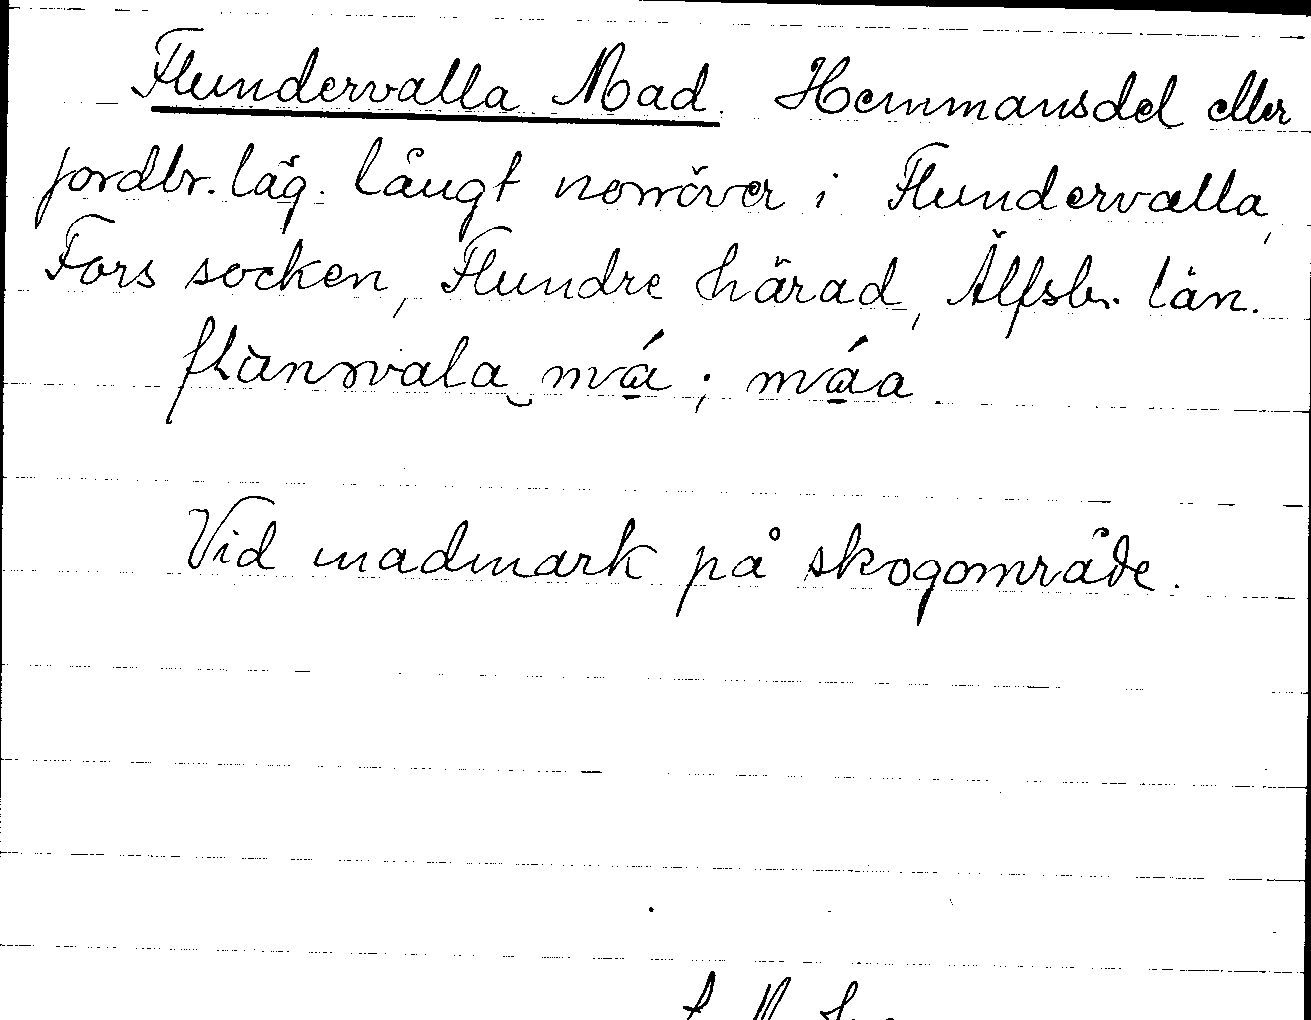 Flundervalla Mad. Hemmansdel eller
jordbr. läg. långt norröver i Flundervalla,
Fors socken, Flundre härad, Älfsb. län.
Vid madmark på skogområde.